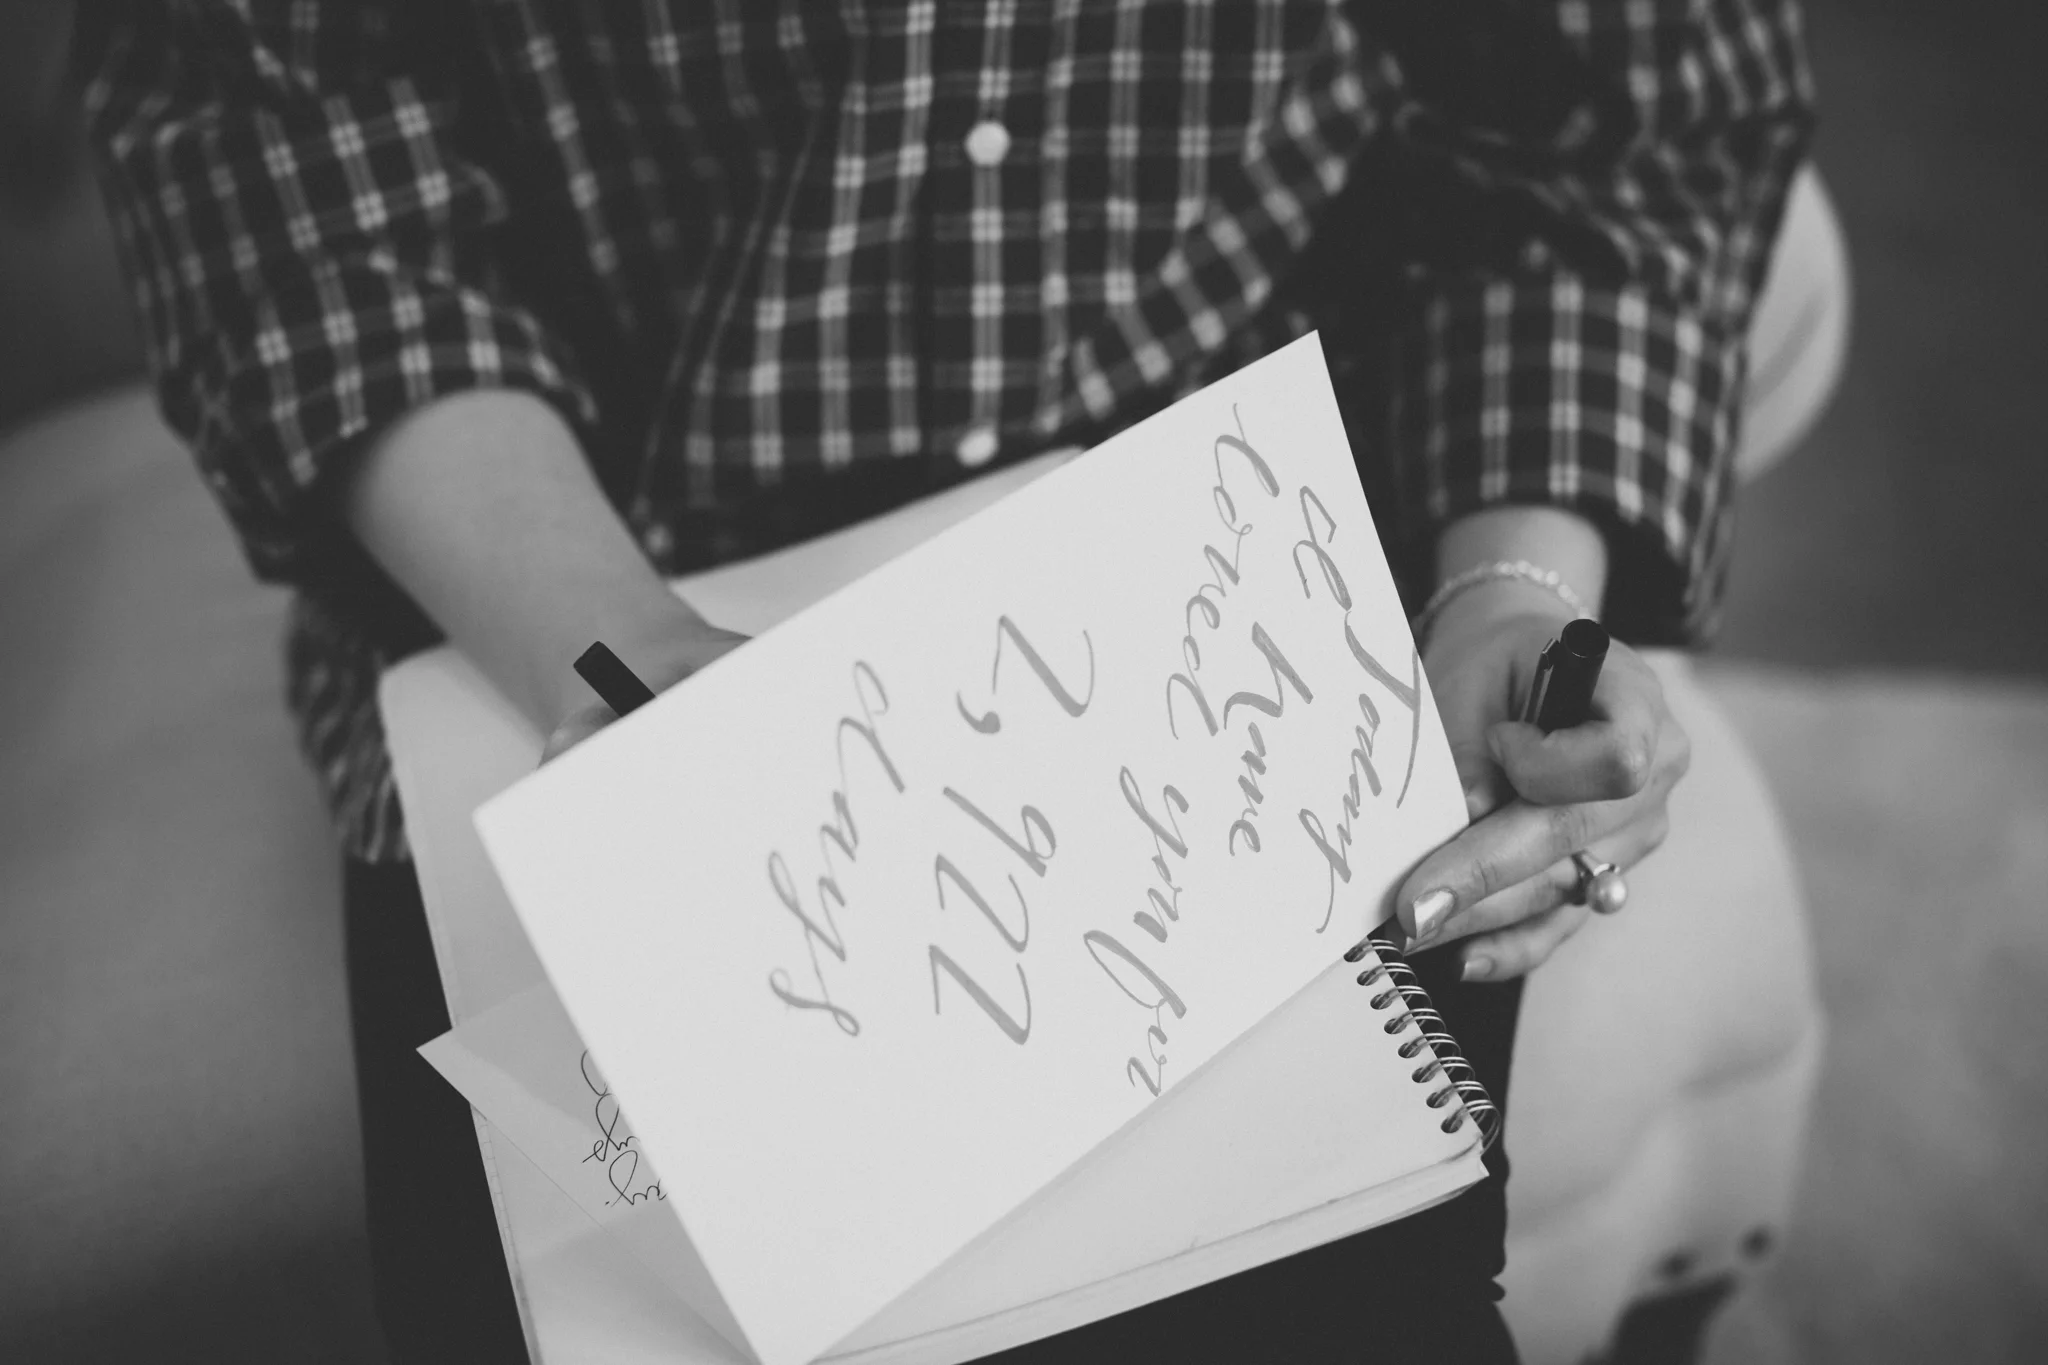 Today
I have
loved you for
2,922
days